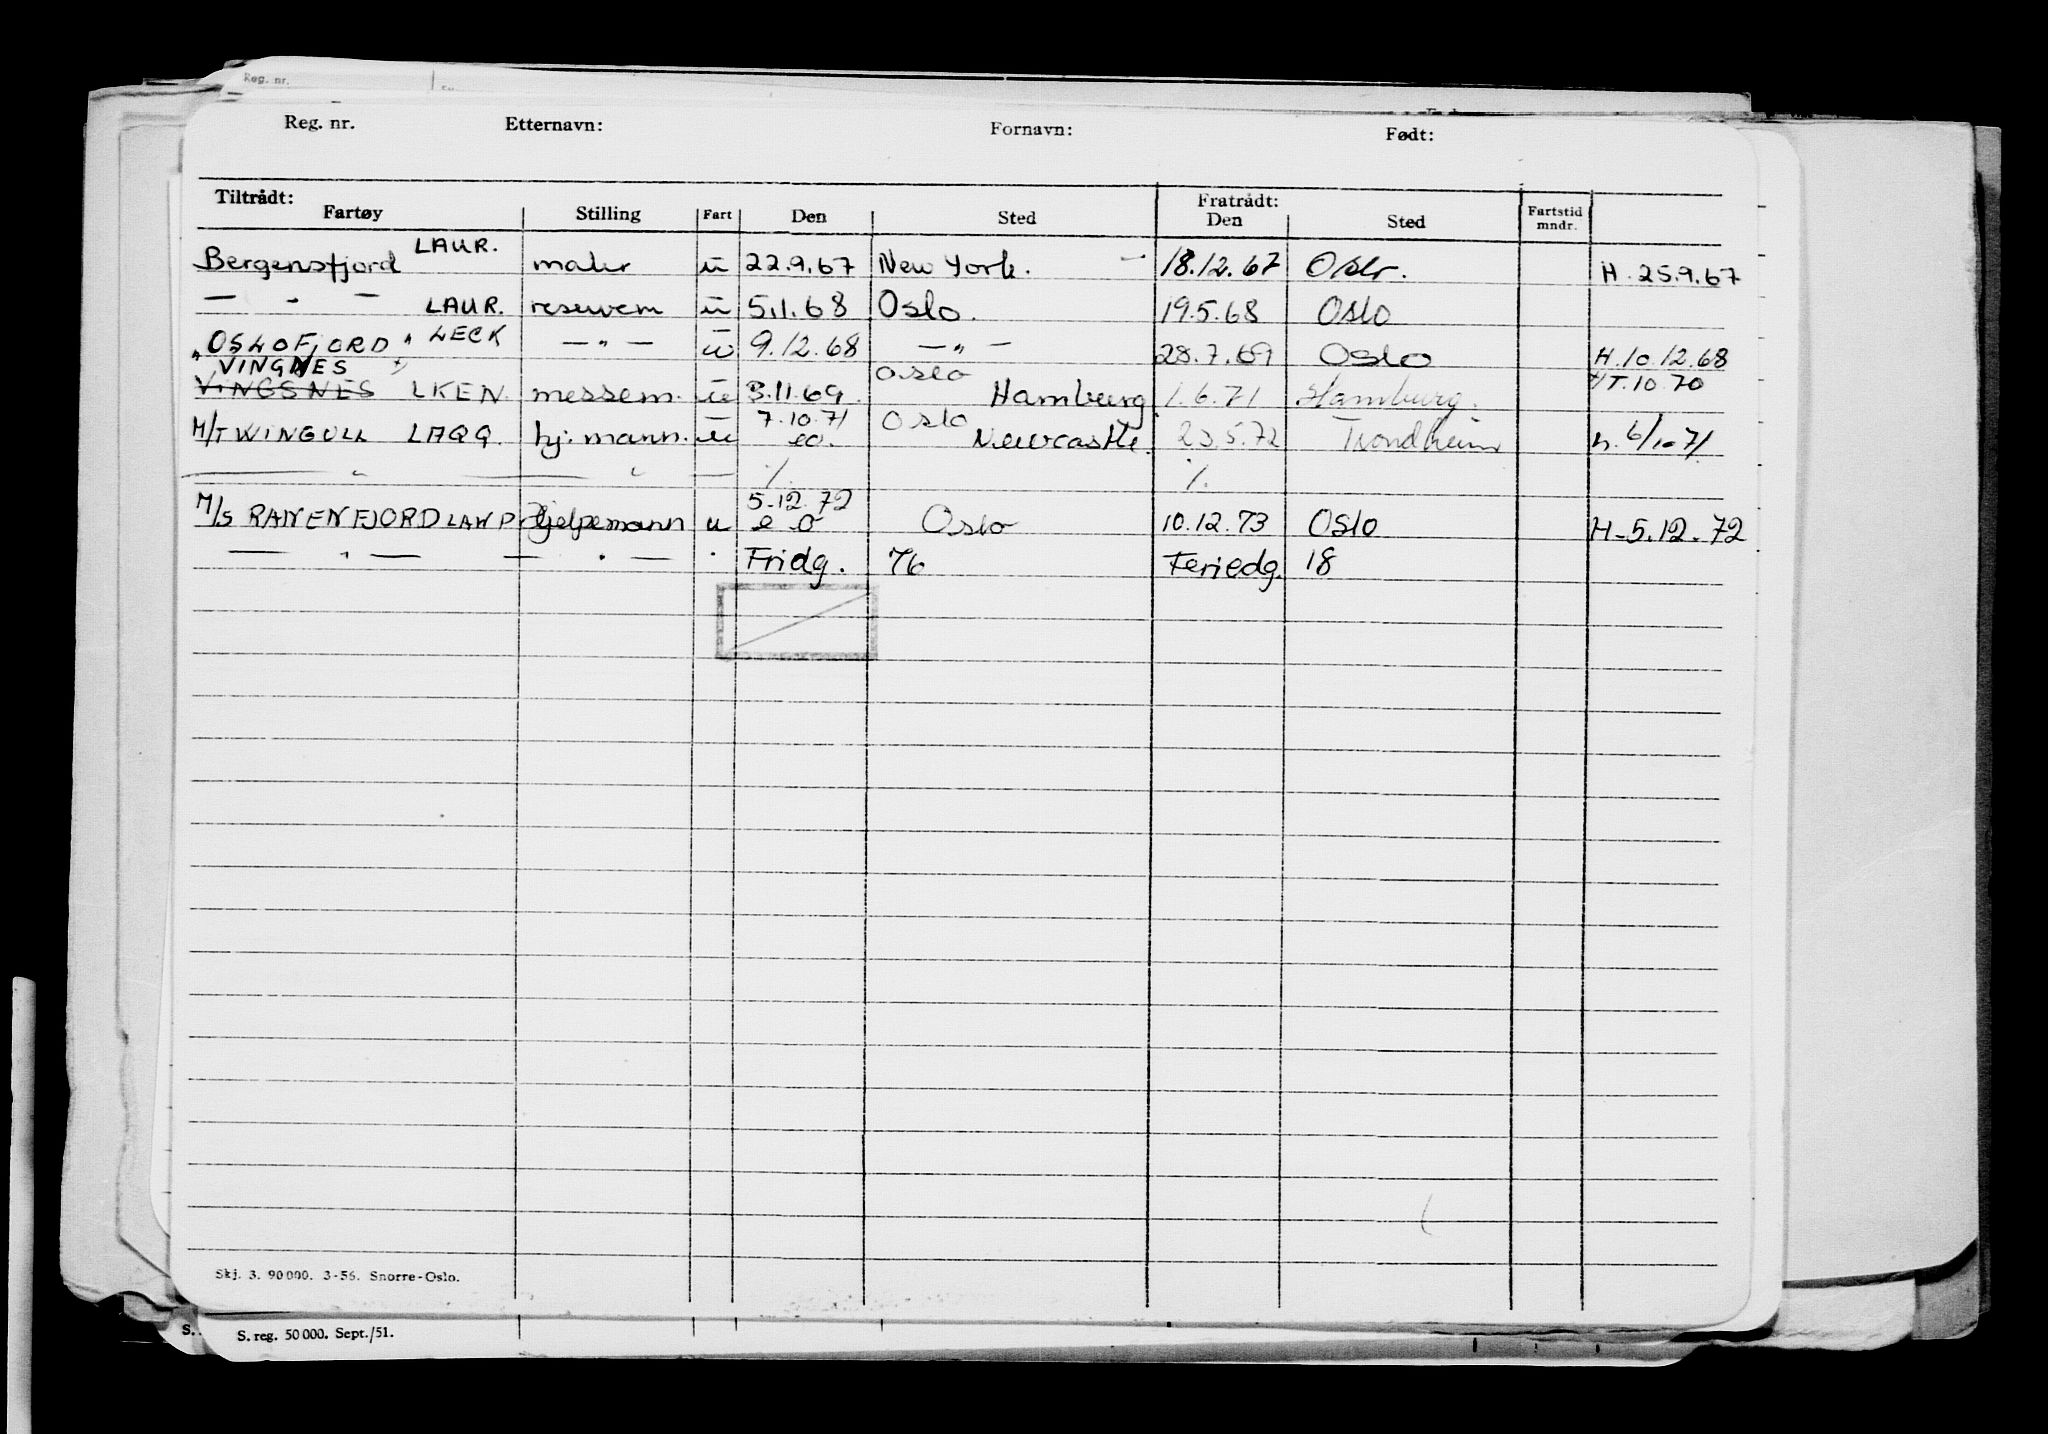 Reg. nr.
Reg. nr. Etternavn: Fornavn: Født:
Tiltrådt: Fratrådt:
Fartøy Stilling Fart Den Sted Den Sted Fartstid mndr.
LAUR.
Bergensfjord u 22.9.67 New York. 18.12.67 H. 25.9.67
— " — LAUR. reservem u 5.1.68 Oslo. 19.5.68 Oslo
"OSLOFJORD" LECK — " — u 9.12.68 — " — 28.7.69 Oslo H.10.12.68
VINGNES Oslo T.10.70
VINGSNES LKEN. messem. u 3.11.69. Hamburg 1.6.71 Hamburg.
7.10.71 Oslo
M/T WINGULL LAQQ. hj. mann. u eo. Newcastle. 23.5.72 Trondheim h. 6/10-71
— " — " — %. %.
5.12.72
M/S RANENFJORD Hjelpemann u e o Oslo 10.12.73 Oslo H-5.12.72
— " — — " — " Fridg. 76 Feriedg. 18
Skj. 3. 90 000. 3-56. Snorre-Oslo.
S. reg. 50 000. Sept./51.